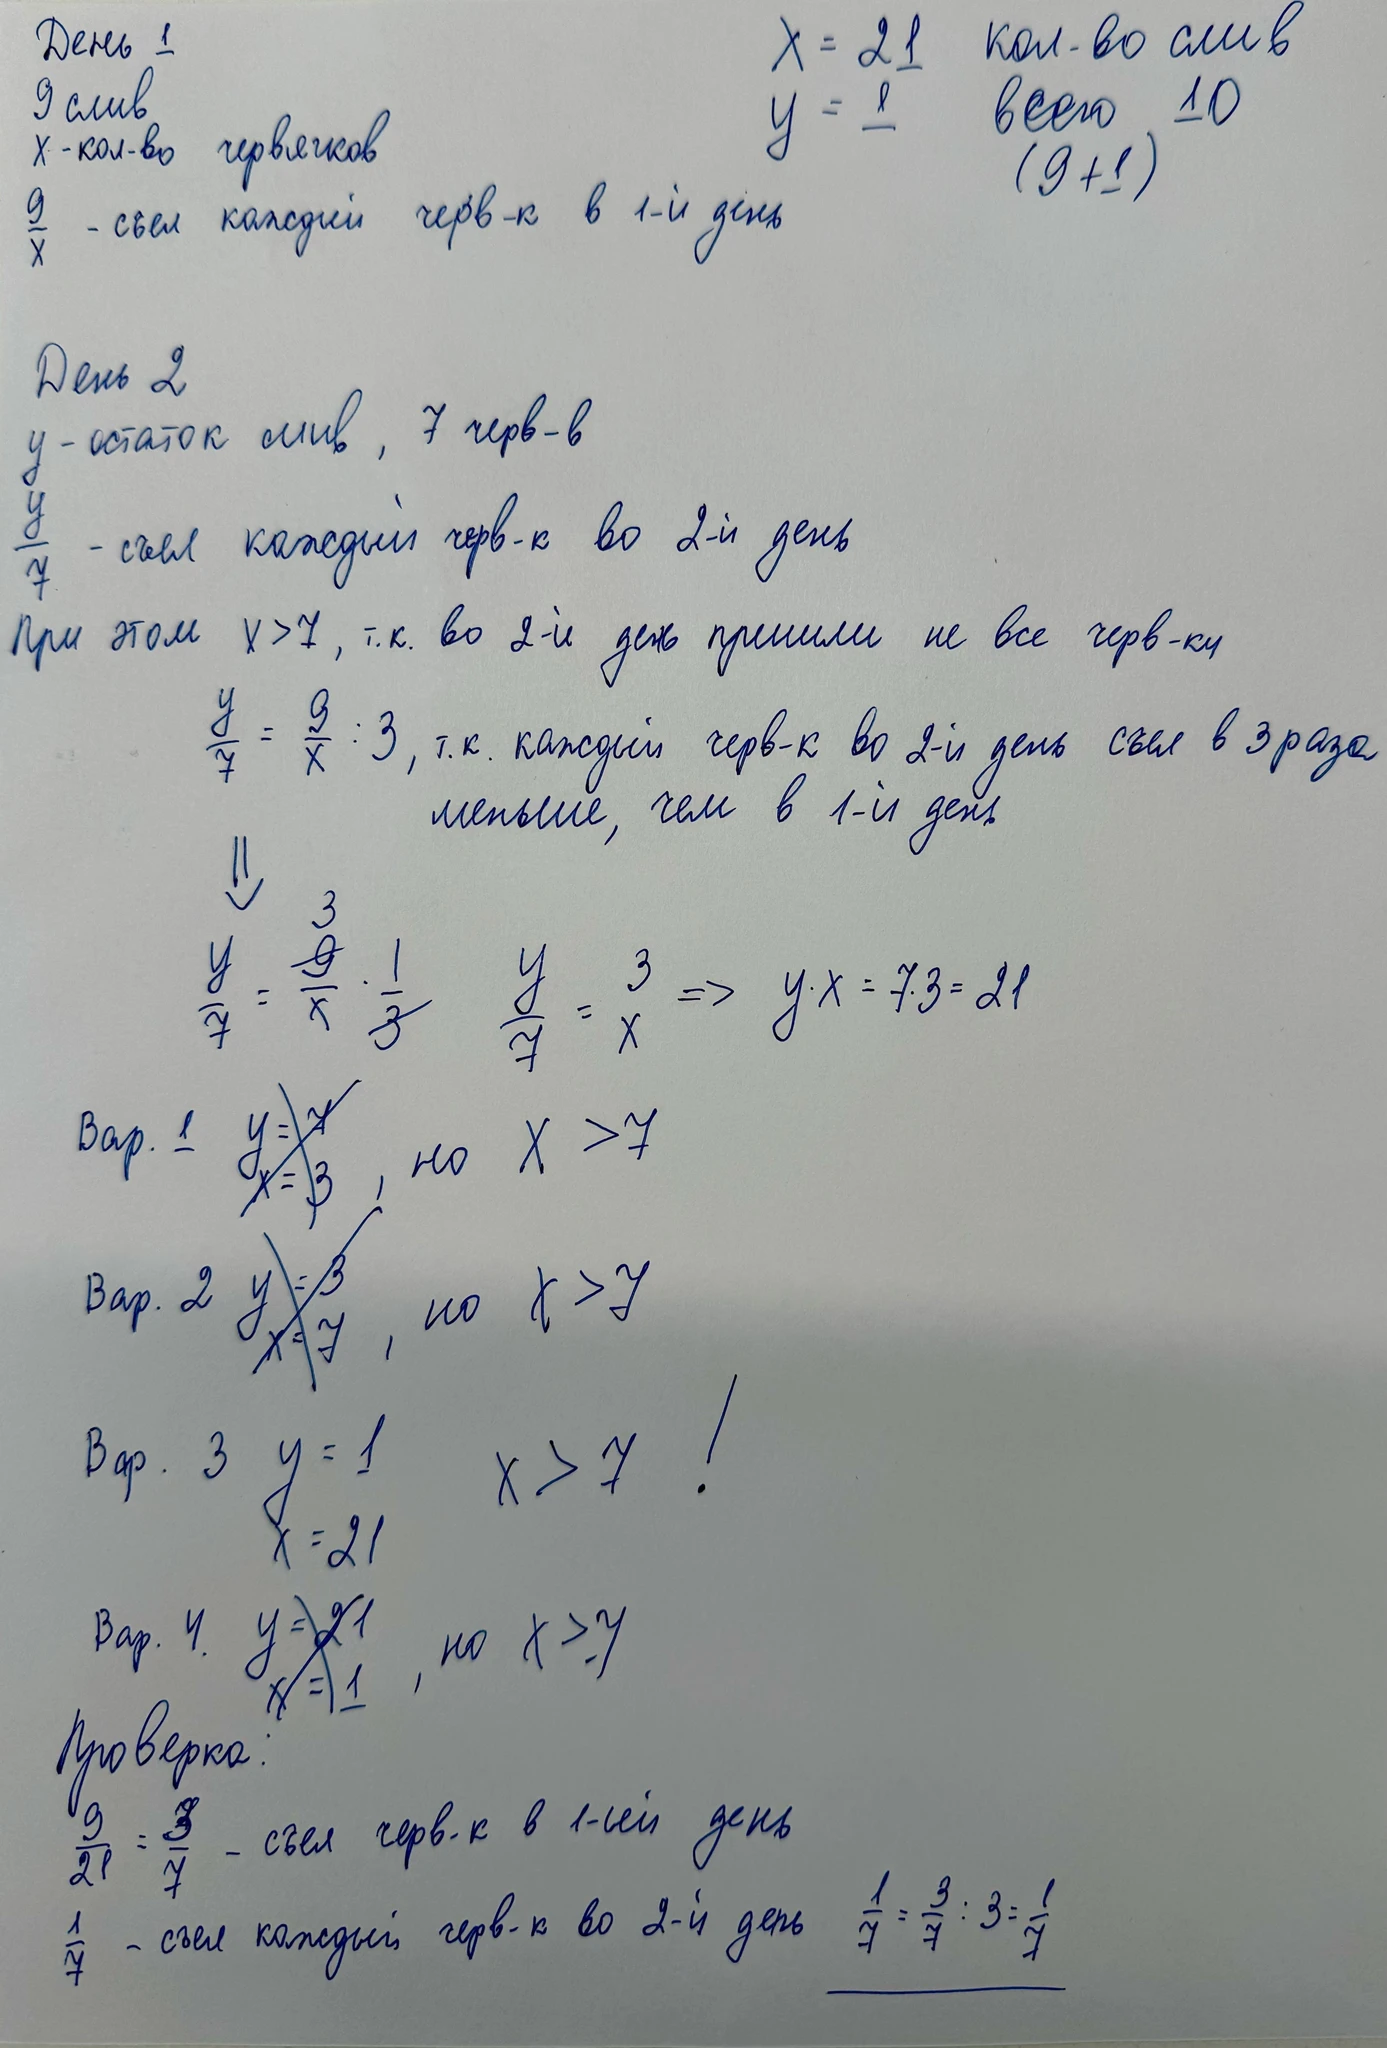 День 1
9 слив
х - кол-во червячков
9/х - съел каждый черв-к в 1-й день
х = 21 кол-во слив
у = 1 всего 10
(9+1)
День 2
у - остаток слив, 7 черв-в
у/7 - съел каждый черв-к во 2-й день
При этом х > 7, т.к. во 2-й день пришли не все черв-ки
у/7 = 9/х : 3, т.к. каждый черв-к во 2-й день съел в 3 раза
меньше, чем в 1-й день
⇓
3
у/7 = 9/х · 1/3 у/7 = 3/х => у·х = 7·3 = 21
Вар. 1 у = 7
х = 3, но х > 7
Вар. 2 у = 3
х = 7, но х > 7
Вар. 3 у = 1 х > 7 !
х = 21
Вар. 4. у = 21
х = 1, но х > 7
Проверка:
9/21 = 3/7 - съел черв-к в 1-ый день
1/7 - съел каждый черв-к во 2-й день 1/7 = 3/7 : 3 = 1/7